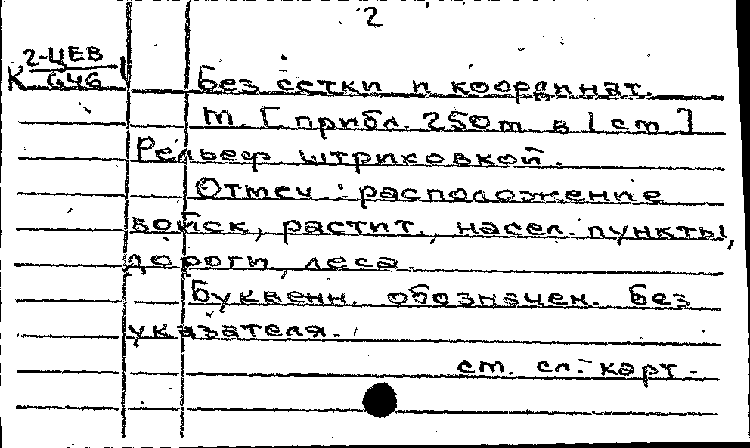 2
2-ЦЕВ
К 646
Без сетки и координат.
М. [прибл. 250 m в 1 cm]
Рельеф штриховкой.
Отмеч: расположение
войск, растит., насел. пункты,
дороги, леса
Буквенн. обозначен. без
указателя.
ст. сл.-карт.